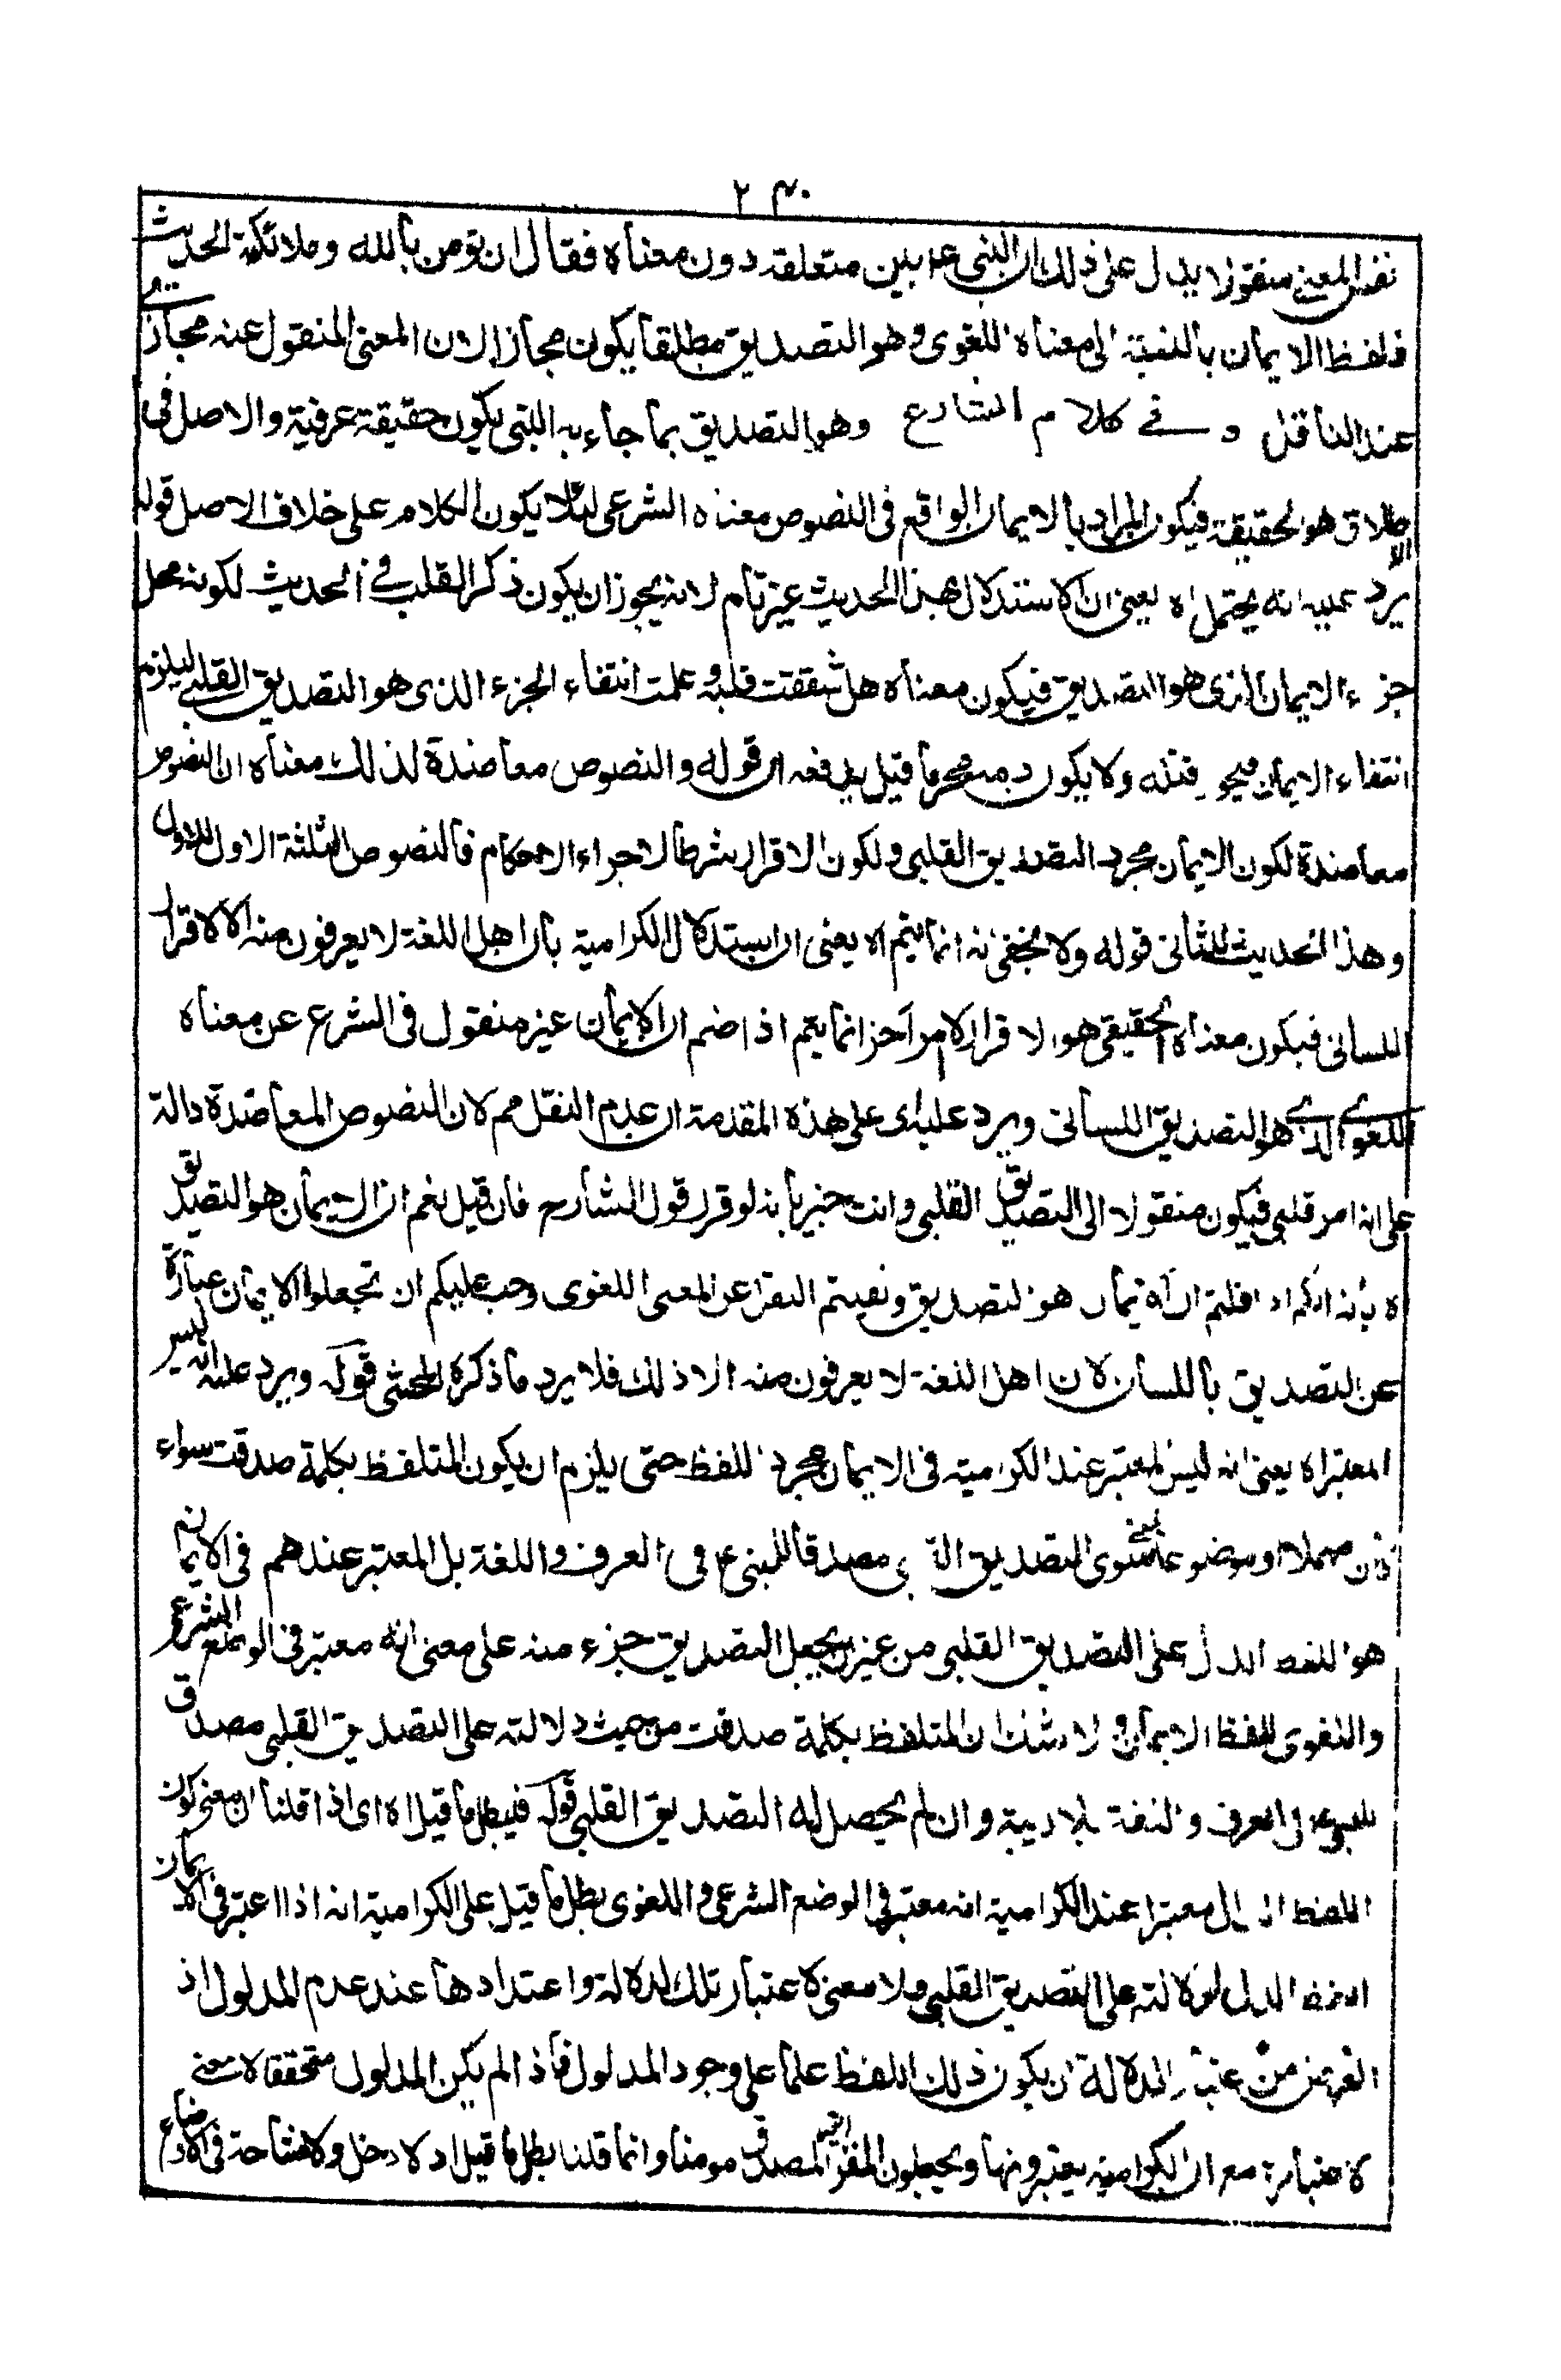 ٢٣٠
نفس المعنى منقولا يدل على ذلك ان النبى عم بين متعلقه دون معناه فقال ان تومن بالله وملائكته الحديث
فلفظ الايمان بالنسبة الى معناه اللغوى وهو التصديق مطلقا يكون مجازا لان المعنى المنقول عنه مجازى
عند الناقل و فى كلام الشارع وهو التصديق بما جاء به النبى يكون حقيقة عرفية والاصل فى
الاطلاق هو الحقيقة فيكون المراد بالايمان الواقع فى النصوص معناه الشرعى لئلا يكون الكلام على خلاف الاصل قوله
يرد عليه انه يحتمل اه يعنى ان الاستدلال بهذا الحديث غير تام لانه يجوز ان يكون ذكر القلب فى الحديث لكونه محل
جزء الايمان الذى هو التصديق فيكون معناه هل شققت قلبه وعلمت انتفاء الجزء الذى هو التصديق القلبى ليلزم
انتفاء الايمان فيجوز قتله ولا يكون دمه محرما قيل يدفعه ان قوله والنصوص معاضدة لذلك معناه ان النصوص
معاضدة لكون الايمان مجرد التصديق القلبى ولكون الاقرار شرطا لاجراء الاحكام فالنصوص الثلثة الاول للاول
وهذا الحديث للثانى قوله ولا يخفى انه انما يتم اه يعنى ان استدلال الكرامية بان اهل اللغة لا يعرفون منه الا الاقرار
اللسانى فيكون معناه الحقيقى هو الاقرار لا امر اخر انما يتم اذا ضم ان الايمان غير منقول فى الشرع عن معناه
اللغوى الذى هو التصديق اللسانى ويرد عليه اى على هذه المقدمة ان عدم النقل مم لان النصوص المعاضدة دالة
على انه امر قلبى فيكون منقولا الى التصديق القلبى وانت خبير بانه لو قرر قول الشارح فان قيل نعم ان الايمان هو التصديق
اه بانه انكم اذا قلتم ان الايمان هو التصديق ونفيتم النقل عن المعنى اللغوى وجب عليكم ان تجعلوا الايمان عبارة
عن التصديق باللسان لان اهل اللغة لا يعرفون منه الا ذلك فلا يرد ما ذكره المحشى قوله ويرد عليه انه ليس
المعتبر اه يعنى انه ليس المعتبر عند الكرامية فى الايمان مجرد اللفظ حتى يلزم ان يكون المتلفظ بكلمة صدقت سواء
كان مهملا او موضوعا لمعنى سوى التصديق القلبى مصدقا للنبى ع فى العرف واللغة بل المعتبر عندهم فى الايمان
هو اللفظ الدال على التصديق القلبى من غير ان يجعل التصديق جزء منه على معنى انه معتبر فى الوضع الشرعى
واللغوى للفظ الايمان ولا شك ان المتلفظ بكلمة صدقت من حيث دلالته على التصديق القلبى مصدق
للنبى عم فى العرف واللغة بلا ريبة وان لم يحصل له التصديق القلبى قوله فيبطل ما قيل اه اى اذا قلنا ان معنى كون
اللفظ الدال معتبرا عند الكرامية انه معتبر فى الوضع الشرعى واللغوى بطل ما قيل على الكرامية انه اذا اعتبر فى الايمان
اللفظ الدال لدلالته على التصديق القلبى فلا معنى لاعتبار تلك الدلالة واعتدادها عند عدم المدلول اذ
الغرض من اعتبار الدلالة ان يكون ذلك اللفظ علما على وجود المدلول فاذا لم يكن المدلول متحققا لا معنى
لاعتباره مع ان الكرامية يعتبرونها ويجعلون المقر المصدق مومنا وانما قلنا بطل ما قيل اذ لا دخل ولا مشاحة فى الاوضاع